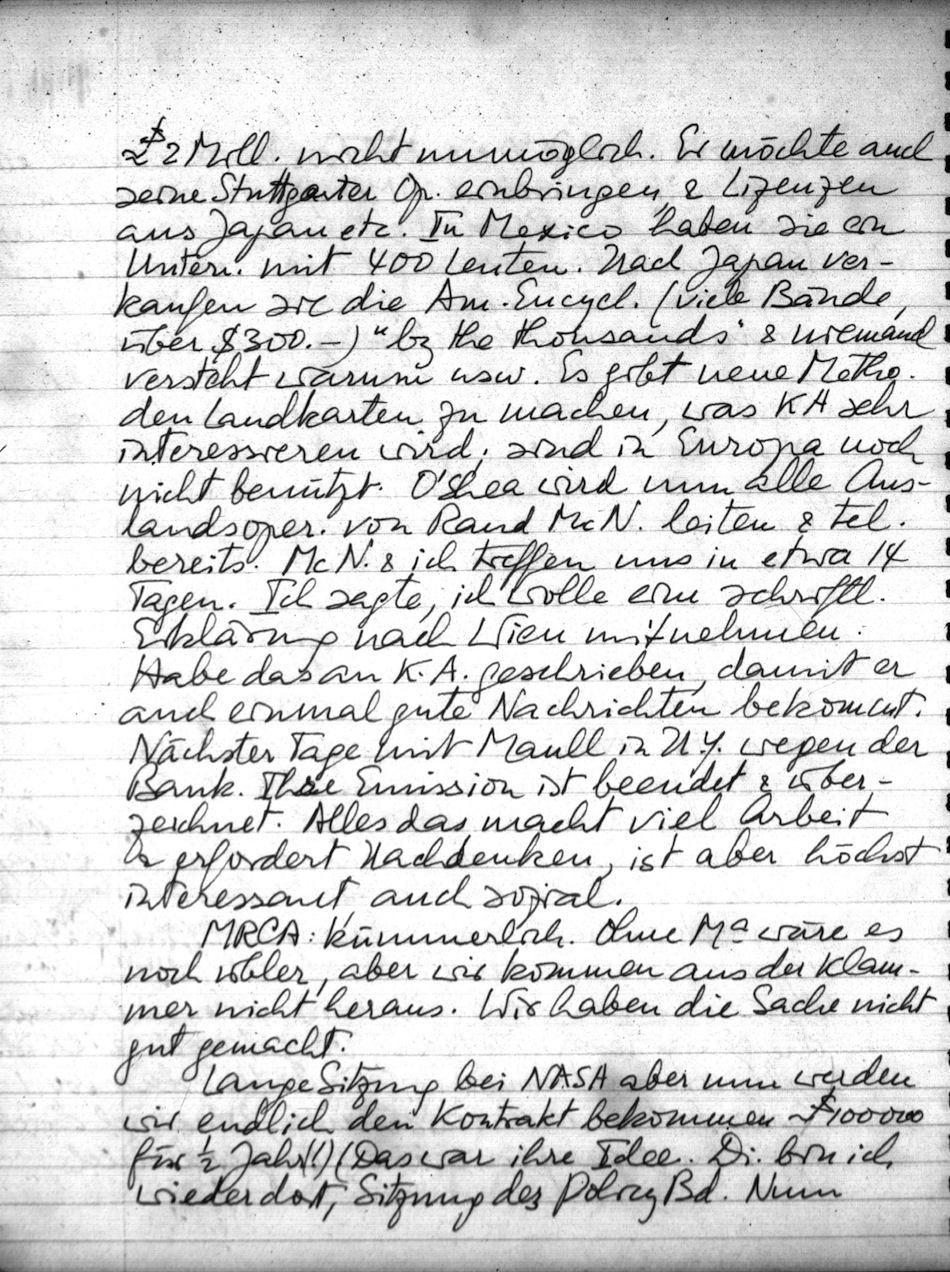 $2 Mill. nicht unmöglich. Er möchte auch
seine Stuttgarter Op. einbringen & Lizenzen
aus Japan etc. In Mexico haben sie ein
Untern. mit 400 Leuten. Nach Japan ver-
kaufen sie die Am. Encycl. (viele Bände,
über $300.–) "by the thousands" & niemand
versteht warum usw. Es gibt neue Metho-
den Landkarten zu machen, was KA sehr
interessieren wird; sind in Europa noch
nicht benützt. O'Shea wird nun alle Aus-
landsoper. von Rand McN. leiten & tel.
bereits. McN. & ich treffen uns in etwa 14
Tagen. Ich sagte, ich wolle eine schriftl.
Erklärung nach Wien mitnehmen.
Habe das an K.A. geschrieben, damit er
auch einmal gute Nachrichten bekommt.
Nächster Tage mit Maull in N.Y. wegen der
Bank. Ihre Emission ist beendet & über-
zeichnet. Alles das macht viel Arbeit
& erfordert Nachdenken, ist aber höchst
interessant, auch sozial.
MRCA: kümmerlich. Ohne Ma wäre es
noch übler, aber wir kommen aus der Klam-
mer nicht heraus. Wir haben die Sache nicht
gut gemacht.
Lange Sitzung bei NASA aber nun werden
wir endlich den Kontrakt bekommen ~$100000
für ½ Jahr(!) (Das war ihre Idee. Di. bin ich
wieder dort, Sitzung des Policy Bd. Nun